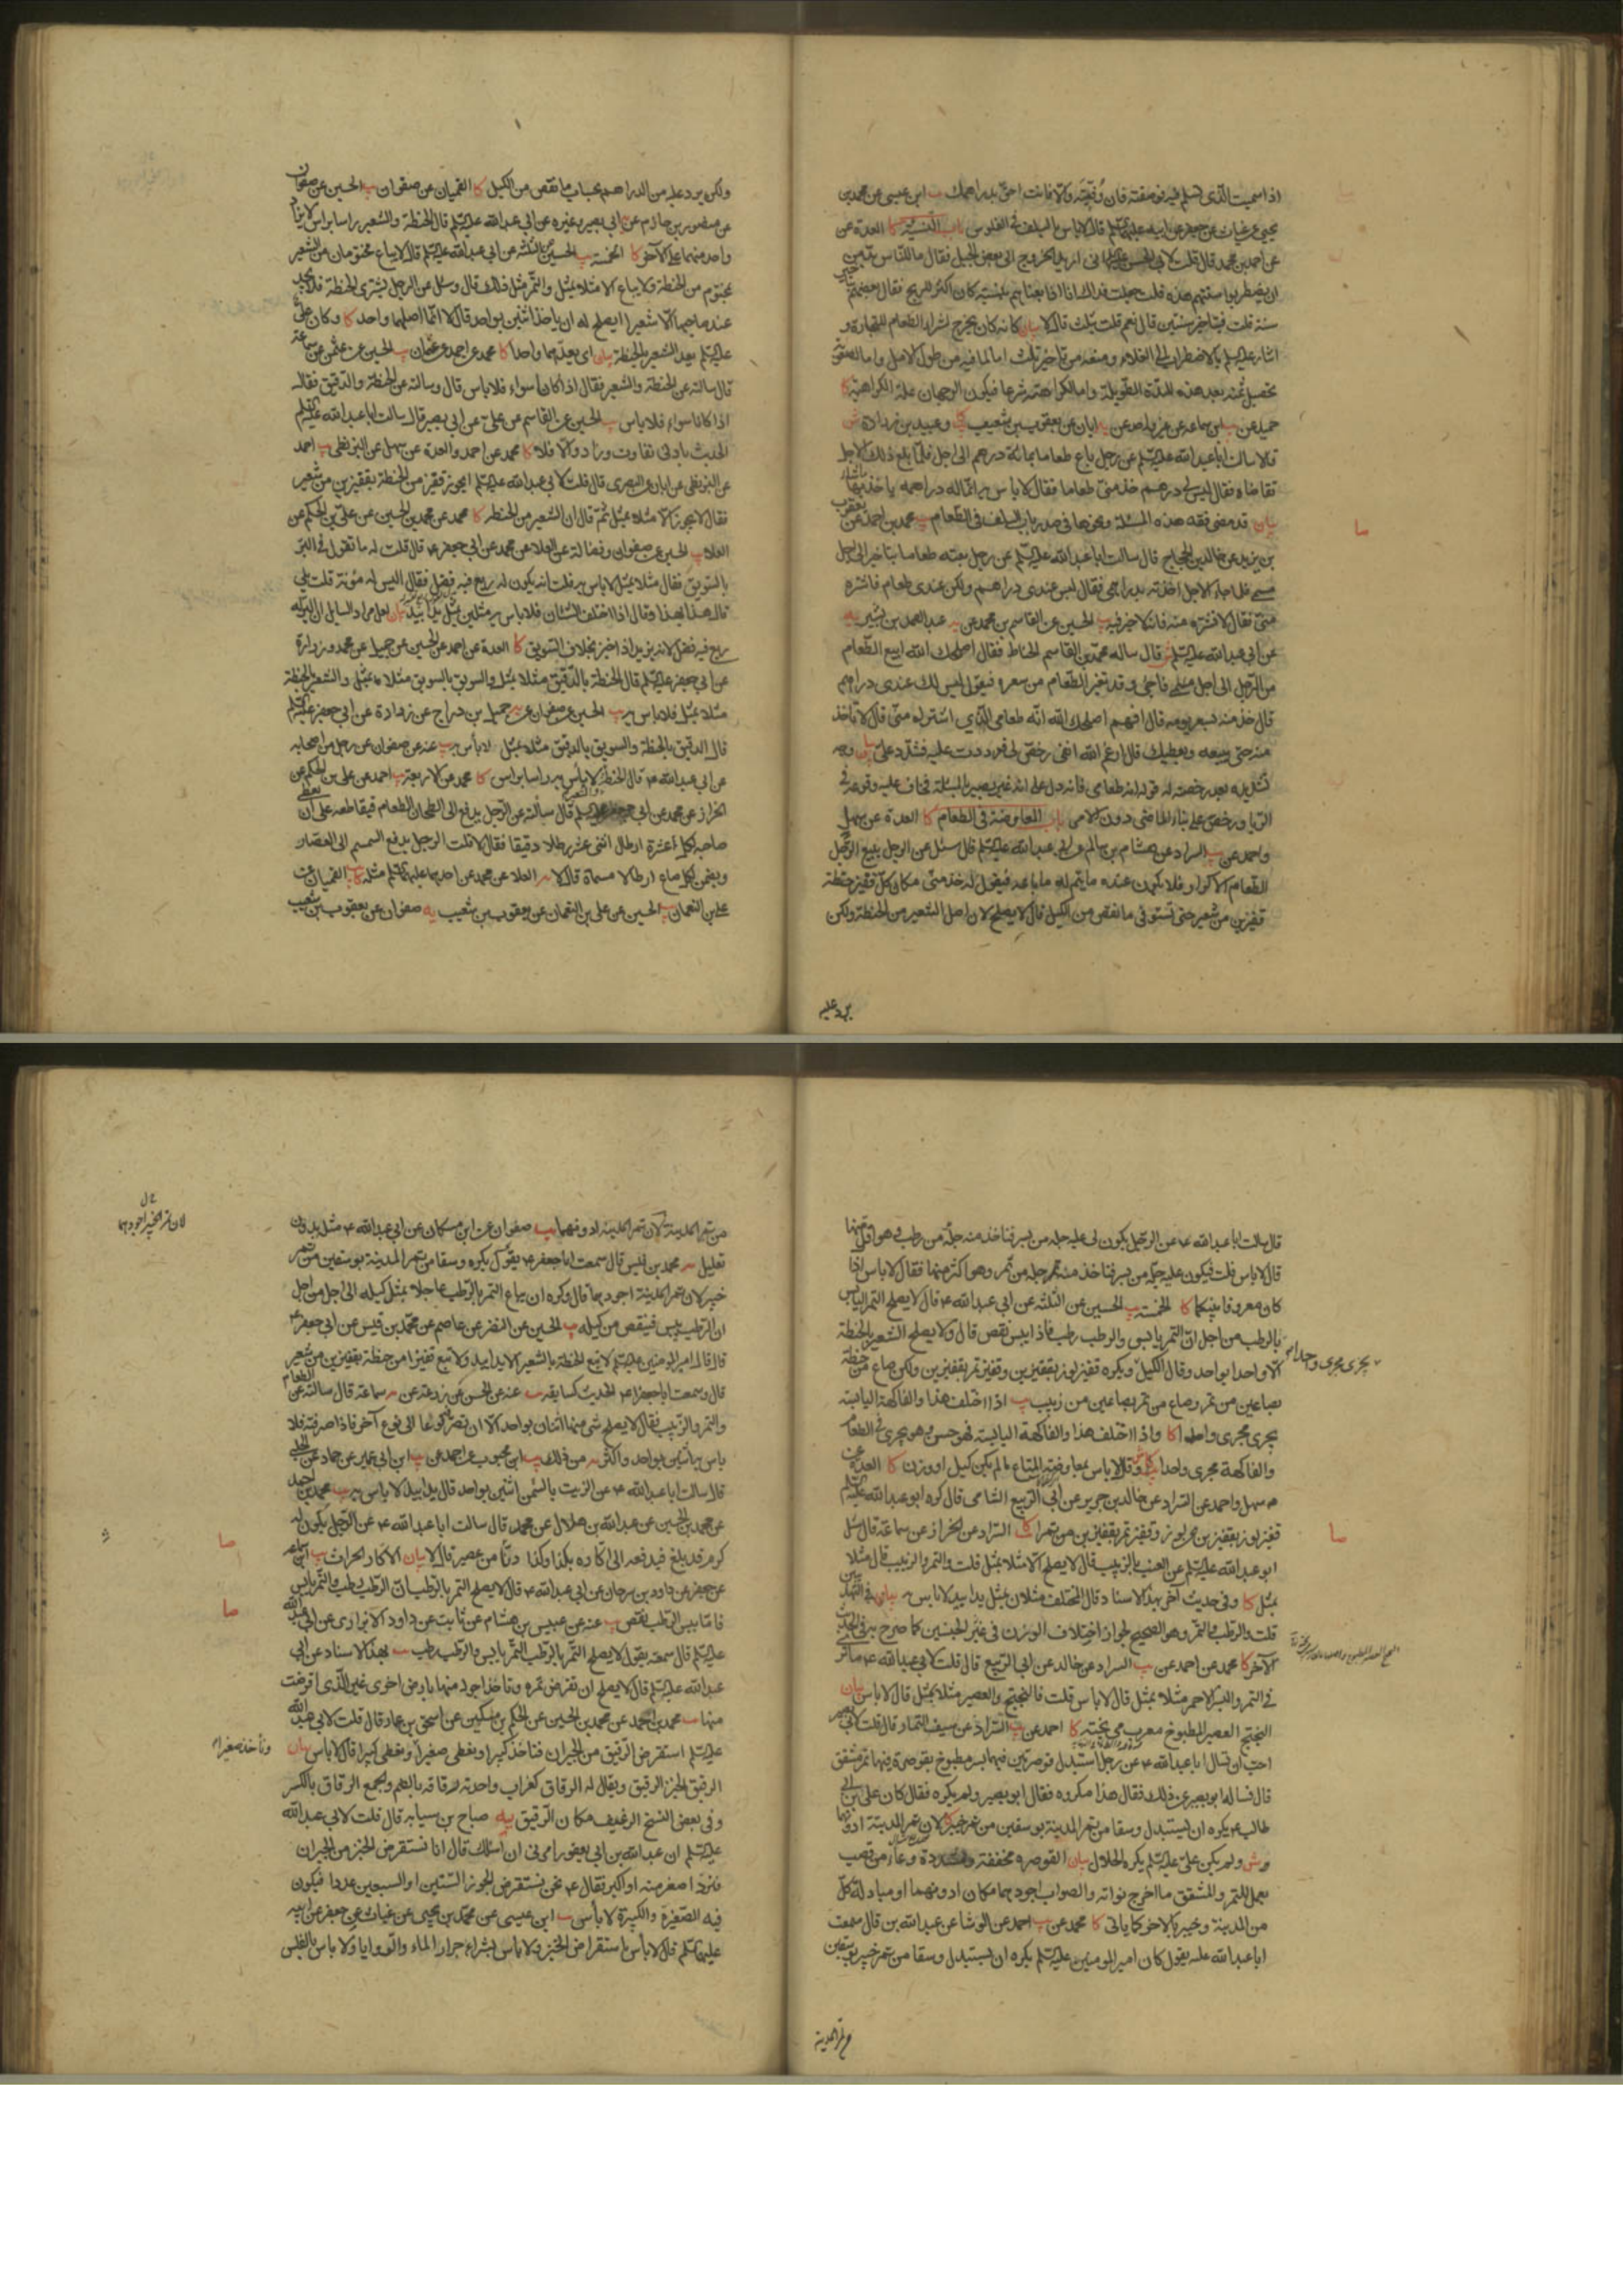 اذا سميت الذى تسلم فيه فوصفته فان وفيته والا فانت احق بدراهمك يب ابن عيسى عن محمد بن
يحيى عن غياث عن جعفر عن ابيه عليهما السلم قال لا باس بالسلف فى الفلوس باب النسيئة كا العدة عن
عن احمد بن محمد قال قلت لابى الحسن انى اريد الخروج الى بعض الجبل فقال ما للناس بد من
ان يضطربوا سنتهم هذه قلت جعلت فداك انا اذا بعناهم بنسيئة كان اكثر للربح فقال بعهم بتاخير
سنة قلت بتاخير سنتين قال نعم قلت بثلث قال لا بيان كانه كان يخرج لشراء الطعام للتجارة و
تحصيل ثمنه بعد هذه المدة الطويلة
حميد عن ابن سماعة عن غير واحد عن ابان عن يعقوب بن شعيب وعبيد بن زرارة
قالا سالت ابا عبد الله عليه السلم عن رجل باع طعاما بمائة درهم الى اجل فلما بلغ ذلك الاجل
تقاضاه فقال ليس لى دراهم خذ منى طعاما فقال لا باس به انما له دراهمه ياخذ بها ما شاء
بيان قد مضى فقه هذه المسئلة ونحوها فى صدر باب السلف فى الطعام يب محمد بن احمد عن يعقوب
بن يزيد عن خالد بن الحجاج قال سالت ابا عبد الله عليه السلم عن رجل بعته طعاما بتاخير الى اجل
مسمى فلما جاء الاجل اخذته بدراهمى فقال ليس عندى دراهم ولكن عندى طعام فاشتره
منى فقال لا تشتره منه فانه لا خير فيه يب الحسين عن القاسم بن محمد عن عبد الصمد بن بشير
عن ابى عبد الله عليه السلم قال ساله محمد بن القاسم الحناط فقال اصلحك الله ابيع الطعام
من الرجل الى اجل فاجئ وقد تغير الطعام من سعره فيقول ليس لك عندى دراهم
قال خذ منه بسعر يومه قال افهم اصلحك الله انه طعامى الذى اشتراه منى قال لا تاخذ
منه حتى يبيعه ويعطيك قال ارغم الله انفى رخص لى فرددت عليه فشدد على بيان وجه
تشديده بعد رخصته له قوله انه طعامى فانه دل على انه غير بصير بالمسئلة فخاف عليه وقوعه فى
الربا ورخص باب المعاوضة فى الطعام كا العدة عن سهل
واحمد عن السراد عن هشام بن سالم عن ابى عبد الله عليه السلم قال سئل عن الرجل يبيع الرجل
الطعام الاكرار فلا يكون عنده ما يتم له ما باعه فيقول له خذ منى مكان كل قفيز حنطة
قفيزين من شعير حتى تستوفى ما نقص من الكيل قال لا يصلح لان اصل الشعير من الحنطة ولكن
يرد عليه
ولكن يرد عليه من الدراهم بحساب ما نقص من الكيل كا القميان عن صفوان يب الحسين عن صفوان
عن منصور بن حازم عن ابى بصير وغيره عن ابى عبد الله عليه السلم قال الحنطة والشعير راسا براس لا يزاد
واحد منهما على الآخر كا الخمسة يب الحسين عن الثلثة عن ابى عبد الله عليه السلم قال لا يباع مختومان من الشعير
بمختوم من الحنطة ولا يباع الا مثلا بمثل والتمر مثل ذلك قال وسئل عن الرجل يشترى الحنطة فلا يجد
عند صاحبها الا شعيرا ايصلح له ان ياخذ اثنين بواحد قال لا انما اصلهما واحد كا وكان على
عليه السلم يعد الشعير بالحنطة بيان اى يعدهما واحدا كا محمد عن احمد عن عثمان يب الحسين عن عثمن عن سماعة
قال سالته عن الحنطة والشعير فقال اذا كانا سواء فلا باس قال وسالته عن الحنطة والدقيق فقال
اذا كانا سواء فلا باس يب الحسين عن القاسم عن على عن ابى بصير قال سالت ابا عبد الله عليه السلم
الحديث بادنى تفاوت وزاد والا فلا كا محمد عن احمد والعدة عن سهل عن البزنطى يب احمد
عن البزنطى عن ابان عن البصرى قال قلت لابى عبد الله عليه السلم ايجوز قفيز من الحنطة بقفيزين من شعير
فقال لا يجوز الا مثلا بمثل ثم قال ان الشعير من الحنطة كا محمد عن محمد بن الحسين عن على بن الحكم عن
العلا يب الحسين عن صفوان وفضالة عن العلا عن محمد عن ابى جعفر ع قال قلت له ما تقول فى البر
بالسويق فقال مثلا بمثل لا باس به قلت انه يكون له ريع فيه فضل فقال اليس له مؤنة قلت بلى
قال هذا بهذا وقال اذا اختلف الشيئان فلا باس به مثلين بمثل يدا بيد بيان لعل مراد السايل ان البر له
ريع فيه فضل لانه يزيد اذا خبز بخلاف السويق كا العدة عن احمد عن الحسين عن جميل عن محمد وزرارة
عن ابى جعفر عليه السلم قال الحنطة بالدقيق مثلا بمثل والسويق بالسويق مثلا بمثل والشعير بالحنطة
مثلا بمثل فلا باس به يب الحسين عن صفوان عن جميل بن دراج عن زرارة عن ابى جعفر عليه السلم
قال الدقيق بالحنطة والسويق بالدقيق مثلا بمثل لا باس به يب عنه عن صفوان عن رجل من اصحابه
عن ابى عبد الله ع قال الحنطة والدقيق لا بأس به راسا براس كا محمد عن الاربعة يب احمد عن على بن الحكم عن
الخراز عن محمد عن ابى جعفر عليه السلم قال سالته عن الرجل يدفع الى الطحان الطعام فيقاطعه على ان يعطى
صاحبه لكل عشرة ارطال اثنى عشر رطلا دقيقا فقال لا قلت الرجل يدفع السمسم الى العصار
ويضمن لكل صاع ارطالا مسماة قال لا العلا عن محمد عن احدهما عليهما السلم مثله كا القميان عن
على بن النعمان يب الحسين عن على بن النعمان عن يعقوب بن شعيب يه صفوان عن يعقوب بن شعيب
قال سالت ابا عبد الله ع عن الرجل يكون لى عليه جلة من بسر فناخذ منه جلة من رطب وهو اقل منها
قال لا باس قلت فيكون عليه جلة من بسر فناخذ منه جلة من تمر وهو اكثر منها فقال لا باس اذا
كان معروفا بينكما كا الخمسة يب الحسين عن الثلثة عن ابى عبد الله ع قال لا يصلح التمر اليابس
بالرطب من اجل ان التمر يابس والرطب رطب فاذا يبس نقص قال ولا يصلح الشعير بالحنطة
الا واحدا بواحد وقال الكيل يجرى مجرى واحدا ويكره قفيز لوز بقفيزين وقفيز تمر بقفيزين ولكن صاع من حنطة
بصاعين من تمر وصاع من تمر بصاعين من زبيب يب اذا اختلف هذا والفاكهة اليابسة
يجرى مجرى واحدا كا واذا اختلف هذا والفاكهة اليابسة فهو حسن وهو يجرى فى الطعام
والفاكهة مجرى واحدا وقال لا باس بمعاوضة المتاع ما لم يكن كيل او وزن كا العدة عن
سهل واحمد عن السراد عن خالد بن جرير عن ابى الربيع الشامى قال كره ابو عبد الله عليه السلم
قفيز لوز بقفيزين من لوز وقفيز تمر بقفيزين من تمر كا السراد عن الخراز عن سماعة قال سئل
ابو عبد الله عليه السلم عن العنب بالزبيب قال لا يصلح الا مثلا بمثل قلت والتمر والزبيب قال مثلا
بمثل كا وفى حديث آخر بهذا الاسناد قال المختلف مثلان بمثل يدا بيد لا باس بيان فى التهذيبين
قلت والرطب والتمر وهو الصحيح لجواز اختلاف الوزن فى غير الجنسين كما صرح به فى الحديث
الآخر كا محمد عن احمد عن السراد عن خالد عن ابى الربيع قال قلت لابى عبد الله ع ما ترى
فى التمر والبسر الاحمر مثلا بمثل قال لا باس قلت فالبختج والعصير مثلا بمثل قال لا باس بيان
البختج العصير المطبوخ معرب مى پخته كا احمد عن السراد عن سيف التمار قال قلت لابى بصير
احب ان تسال ابا عبد الله ع عن رجل استبدل قوصرتين فيهما بسر مطبوخ بقوصرة فيها تمر مشقق
قال فساله ابو بصير عن ذلك فقال هذا مكروه فقال ابو بصير ولم يكره فقال كان على بن ابى
طالب ع يكره ان يستبدل وسقا من تمر المدينة بوسقين من تمر خيبر لان تمر المدينة ادونهما
ولم يكن على عليه السلم يكره الحلال بيان القوصرة مخففة ومشددة وعاء من قصب
يعمل للتمر والمشقق ما اخرج نواته والصواب اجودهما مكان ادونهما او مبادلة كل
من المدينة وخيبر بالاخر كما ياتى كا محمد عن احمد عن الوشا عن عبد الله بن قال سمعت
ابا عبد الله عليه يقول كان امير المومنين عليه السلم يكره ان يستبدل وسقا من تمر خيبر بوسقين
من تمر المدينة
من تمر المدينة لان تمر المدينة ادونهما يب صفوان عن ابن مسكان عن ابى عبد الله ع مثل بدون
لان تمر الخيبر اجودهما
تعليل محمد بن قيس قال سمعت ابا جعفر ع يقول يكره وسقا من تمر المدينة بوسقين من تمر
خيبر لان تمر المدينة اجودهما قال وكره ان يباع التمر بالرطب عاجلا بمثل كيله الى اجل من اجل
ان الرطب ييبس فينقص من كيله يب الحسين عن النضر عن عاصم عن محمد بن قيس عن ابى جعفر ع
قال قال امير المومنين عليه السلم لا تبع الحنطة بالشعير الا يدا بيد ولا تبع قفيزا من حنطة بقفيزين من شعير
قال وسمعت ابا جعفر ع الحديث كسابقه يب عنه عن الحسن عن زرعة عن سماعة قال سالته عن الطعام
والتمر والزبيب فقال لا يصلح شئ منها اثنان بواحد الا ان تصرفه نوعا الى نوع آخر فاذا صرفته فلا
باس به اثنين بواحد واكثر من ذلك يب ابن محبوب عن احمد عن ابن ابى عمير عن حماد عن الحلبى
قال سالت ابا عبد الله ع عن الزيت بالسمن اثنين بواحد قال يدا بيد لا باس به يب محمد بن احمد
عن محمد بن الحسين عن عبد الله بن هلال عن محمد قال سالت ابا عبد الله ع عن الرجل يكون له
كرم قد بلغ فيدفعه الى اكاره بكذا وكذا دنا من عصير قال لا بيان الاكار الحراث يب ابن سماعة
عن جعفر عن داود بن سرحان عن ابى عبد الله ع قال لا يصلح التمر بالرطب ان الرطب رطب والتمر يابس
فاذا يبس الرطب نقص يب عنه عن عبيس بن هشام عن ثابت عن داود الابزارى عن ابى عبد الله
عليه السلم قال سمعته يقول لا يصلح التمر بالرطب التمر يابس والرطب رطب يب بهذا الاسناد عن ابى
عبد الله عليه السلم قال لا يصلح ان تقرض ثمرة وتاخذ اجود منها بارض اخرى غير الذى اقرضت
منها يب محمد بن احمد عن محمد بن الحسين عن الحكم بن مسكين عن اسحق بن عمار قال قلت لابى عبد الله
عليه السلم استقرض الرقيق من الجيران فناخذ كبيرا ونعطى صغيرا ونعطى كبيرا قال لا باس بيان
ونأخذ صغيرا
الرقيق الخبز الرقيق ويقال له الرقاق كغراب واحدته الرقاقة بالضم والجمع الرقاق بالكسر
وفى بعض النسخ الرغيف مكان الرقيق يه صباح بن سيابه قال قلت لابى عبد الله
عليه السلم ان عبد الله بن ابى يعفور امرنى ان اسئلك قال انا نستقرض الخبز من الجيران
فنرد اصغر منه او اكبر فقال ع نحن نستقرض الجوز الستين او السبعين عددا فيكون
فيه الصغيرة والكبيرة لا بأس يب ابن عيسى عن محمد بن يحيى عن غياث عن جعفر عن ابيه
عليهما السلم قال لا بأس باستقراض الخبز ولا باس بشراء جرار الماء والروايا ولا باس بالفلس